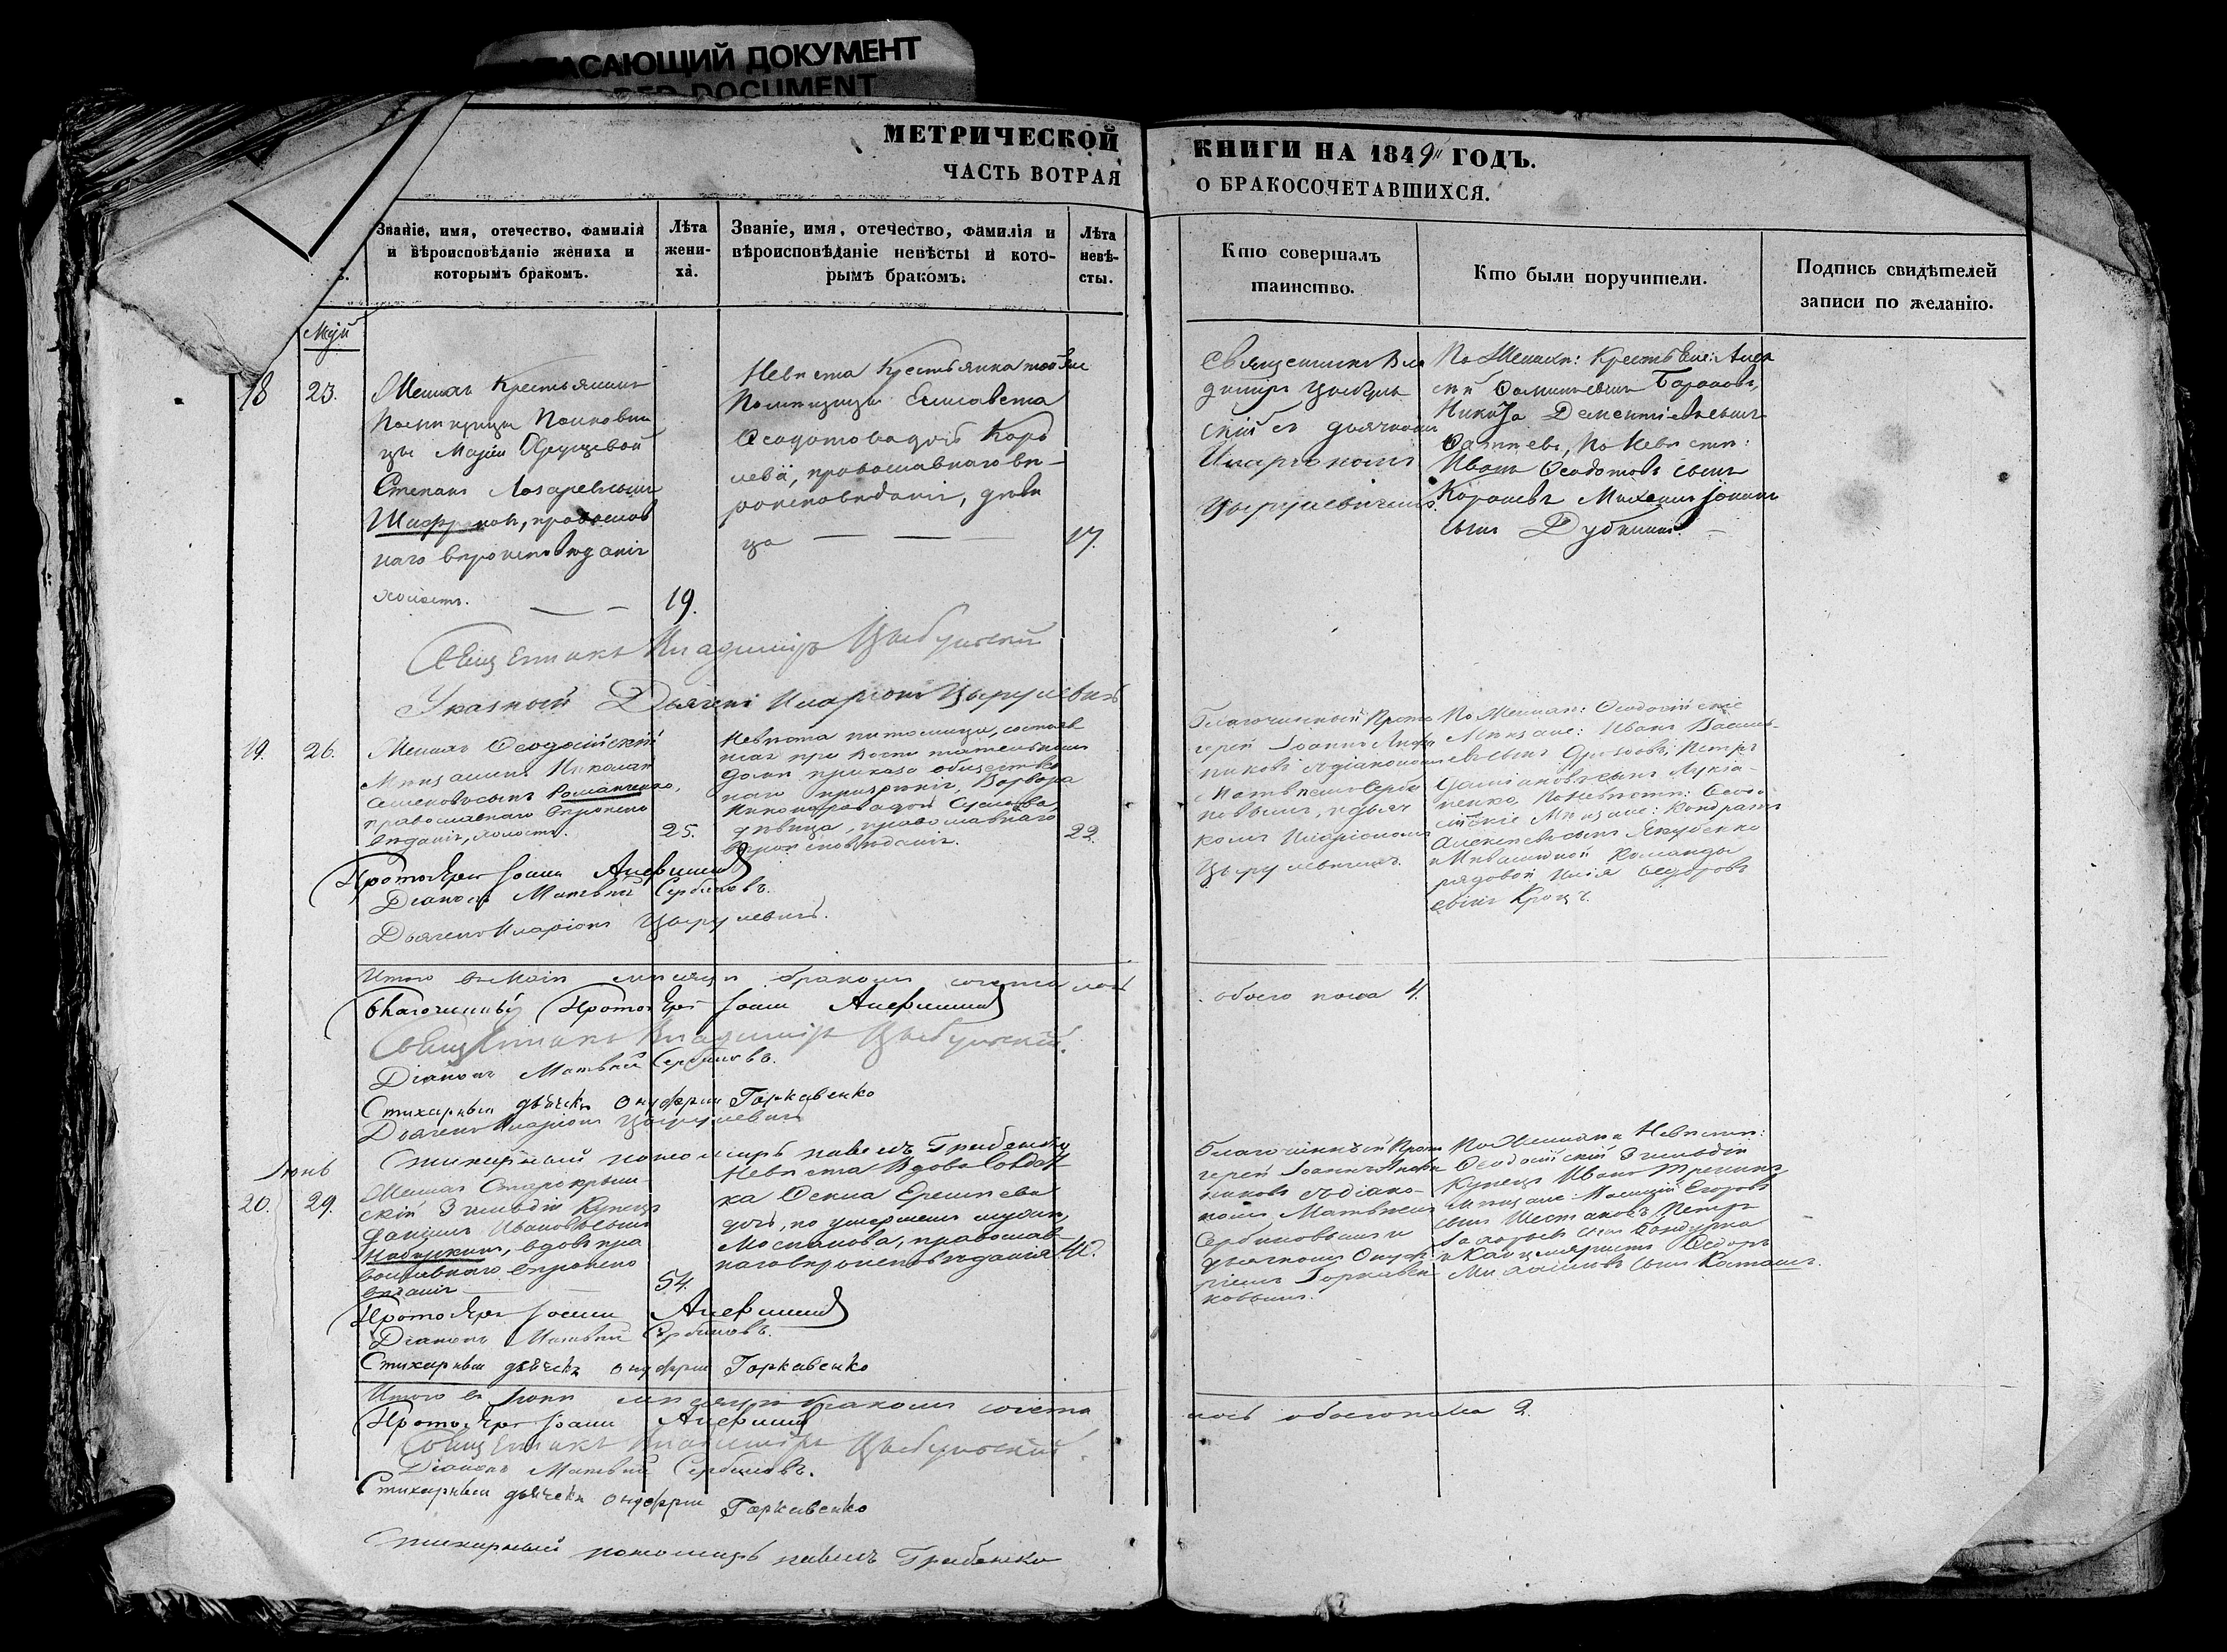 АСАЮЩИЙ ДОКУМЕНТ
DOCUMENT
МЕТРИЧЕСКОЙ
ЧАСТЬ ВОТРАЯ
КНИГИ НА 1849 ГОДЪ.
О БРАКОСОЧЕТАВШИХСЯ.
Званіе, имя, отечество, фамилія
и вѣроисповѣданіе жениха и
которымъ бракомъ.
Лѣта
жени-
ха.
Званіе, имя, отечество, фамилія и
вѣроисповѣданіе невѣсты и кото-
рымъ бракомъ.
Лѣта
невѣ-
сты.
Кто совершалъ
таинство.
Кто были поручители.
Подпись свидѣтелей
записи по желанію.
Май
18
23.
Женихъ Крестьянинъ
Помѣщицы Полковни
цы Маріи
Степанъ Лазаревъ сынъ
православ
наго вѣроисповѣданія
холостъ.
19.
Невѣста Крестьянка той же
Помѣщицы Елисавета
Ѳеодотова дочь Коро
лева, православнаго вѣ-
роисповѣданія, дѣви
ца
17.
Священникъ Вла
димиръ Цыбуль
скій съ дьячкомъ
Иларіономъ
Цырулевичемъ.
По Женихѣ: Крестьяне:
Иванъ Ѳеодотовъ сынъ
Королевъ Михаилъ
сынъ
Священникъ Владиміръ Цыбульскій
Указный Дьячекъ Иларіонъ Цырулевичъ
19.
26.
Женихъ Ѳеодосійскій
Мѣщанинъ Николай
Семеновъ сынъ Романченко,
православнаго вѣроиспо
вѣданія, холостъ.
25.
Невѣста питомица, состояв
шая при Воспитательномъ
домѣ приказа обществен
наго призрѣнія, Варвара
дѣвица, православнаго
вѣроисповѣданія.
22.
Благочинный Прото
іерей Іоаннъ
Матвѣемъ Серби
новымъ, и дьяч
комъ Иларіономъ
Цырулевичемъ.
По Женихѣ: Ѳеодосійскіе
Мѣщане: Иванъ Василь
евъ сынъ Петръ
Даміановъ сынъ Лукіа-
ненко, По Невѣстѣ: Ѳеодо
сійскіе Мѣщане: Кондратъ
Алексѣевъ сынъ Якубенко
и Инвалидной Команды
рядовой Илія Ѳедоровъ
сынъ
Протоіерей Іоаннъ
Діаконъ Матвѣй Сербиновъ.
Дьячекъ Иларіонъ Цырулевичъ.
Итого въ Маѣ мѣсяцѣ бракомъ сочеталось
обоего пола 4.
Благочинный Протоіерей Іоаннъ
Священникъ Владиміръ Цыбульскій.
Діаконъ Матвѣй Сербиновъ.
Стихарный дьячекъ Онуфрій Горкавенко
Дьячекъ Иларіонъ Цырулевичъ
Стихарный пономарь Павелъ Грибенко
Іюнь
20.
29.
Женихъ Старокрым
скій 3 гильдіи Купецъ
Даніилъ Ивановъ сынъ
вдовъ пра
вославнаго вѣроиспо
вѣданія
54.
Невѣста Вдова Солдат
ка Ѳекла Еремѣева
дочь, по умершемъ мужѣ,
православ
наго вѣроисповѣданія
40.
Благочинный Прото
іерей Іоаннъ
съ діако-
номъ Матвѣемъ
Сербиновымъ и
дьячкомъ Онуф
ріемъ Горкавен
ковымъ.
По Женихѣ и Невѣстѣ:
Ѳеодосійскій 3 гильдіи
Купецъ Иванъ
Мѣщане: Егоровъ
сынъ Шестаковъ, Петръ
сынъ Бондурка
и Канцеляристъ Ѳедоръ
Михаиловъ сынъ
Протоіерей Іоаннъ
Діаконъ Матвѣй Сербиновъ.
Стихарный дьячекъ Онуфрій Горкавенко
Итого въ Іюнѣ мѣсяцѣ бракомъ сочета
лось обоего пола 2.
Протоіерей Іоаннъ
Священникъ Владиміръ Цыбульскій.
Діаконъ Матвѣй Сербиновъ.
Стихарный дьячекъ Онуфрій Горкавенко
Стихарный пономарь Павелъ Грибенко